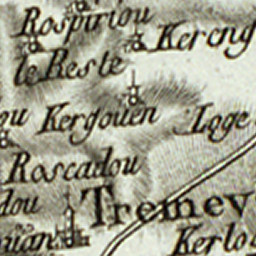 Rospiriou
Kereng
le Reste
ou Kergouen Loge
Roscadou
dou Tremev
ouän Kerlo